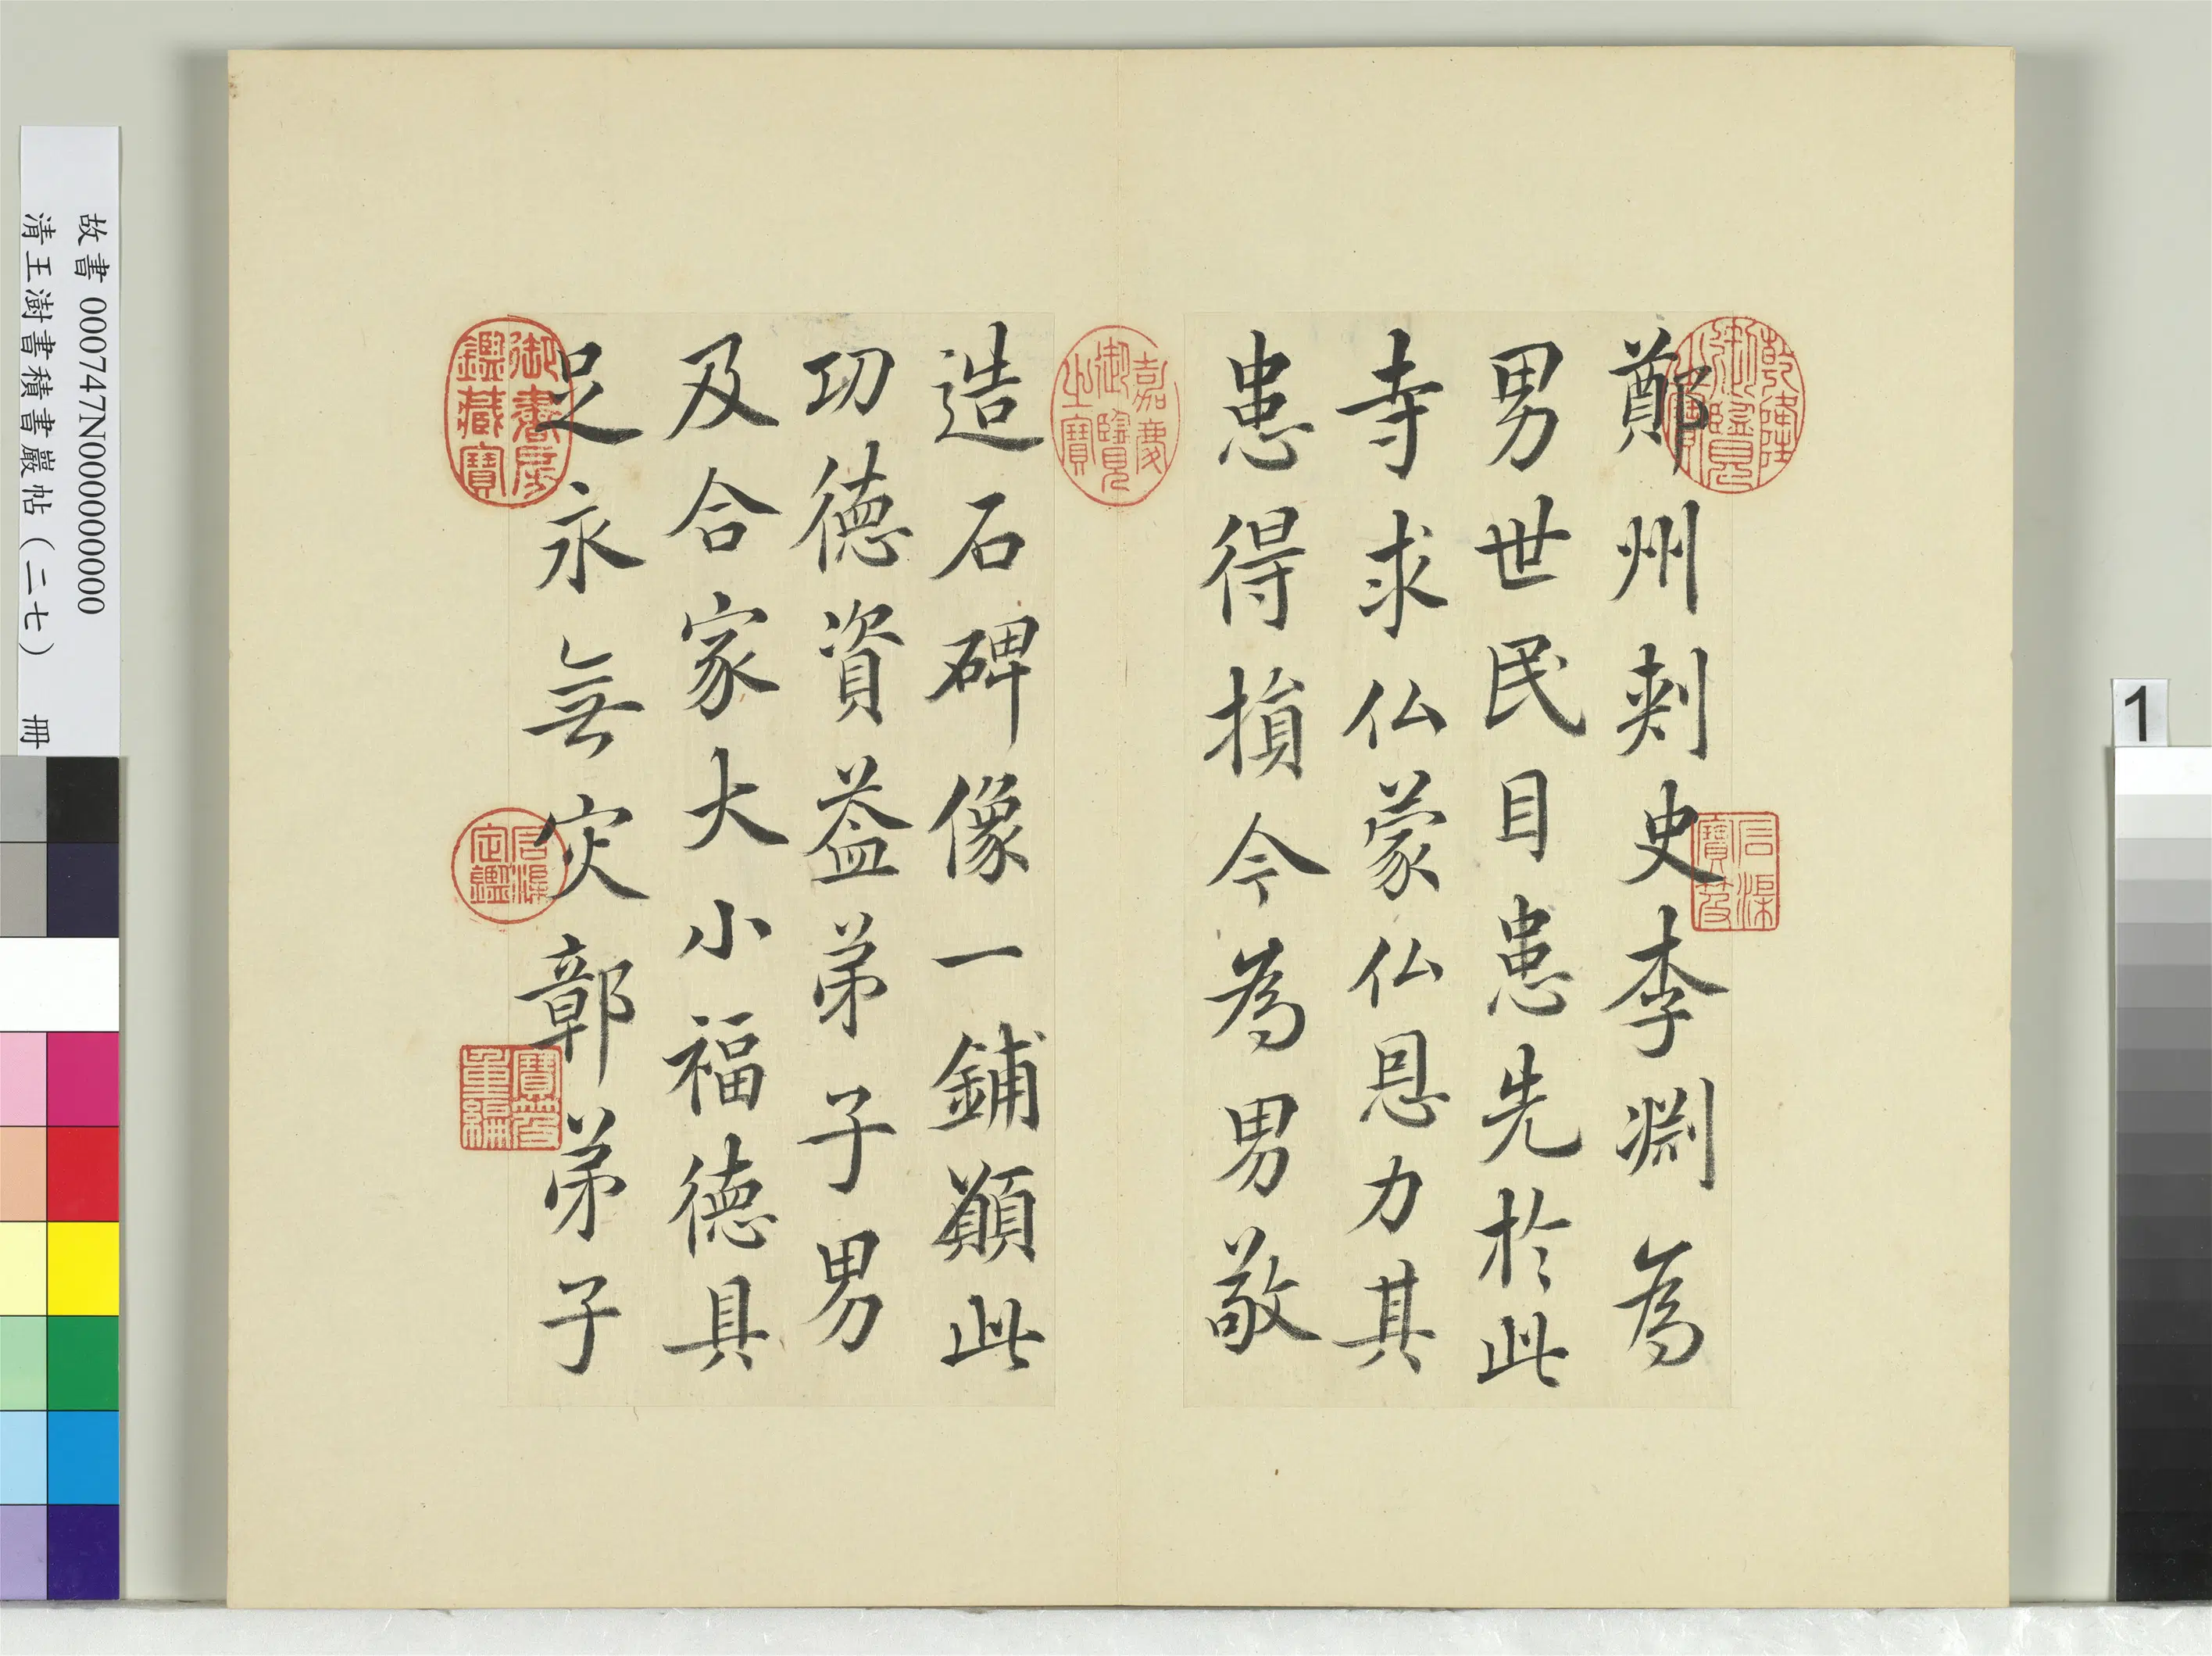 鄭州刾史李淵為
男世民目患先於此
寺求仏蒙仏恩力其
患得損今為男敬
造石碑像一鋪願此
功德資益弟子男
及合家大小福德具
足永無灾鄣弟子
乾隆御覽之寶
石渠寶笈
嘉慶御覽之寶
御書房鑑藏寶
石渠定鑑
寶笈重編
故書 000747N000000000
清王澍書積書巖帖(二七) 冊
1